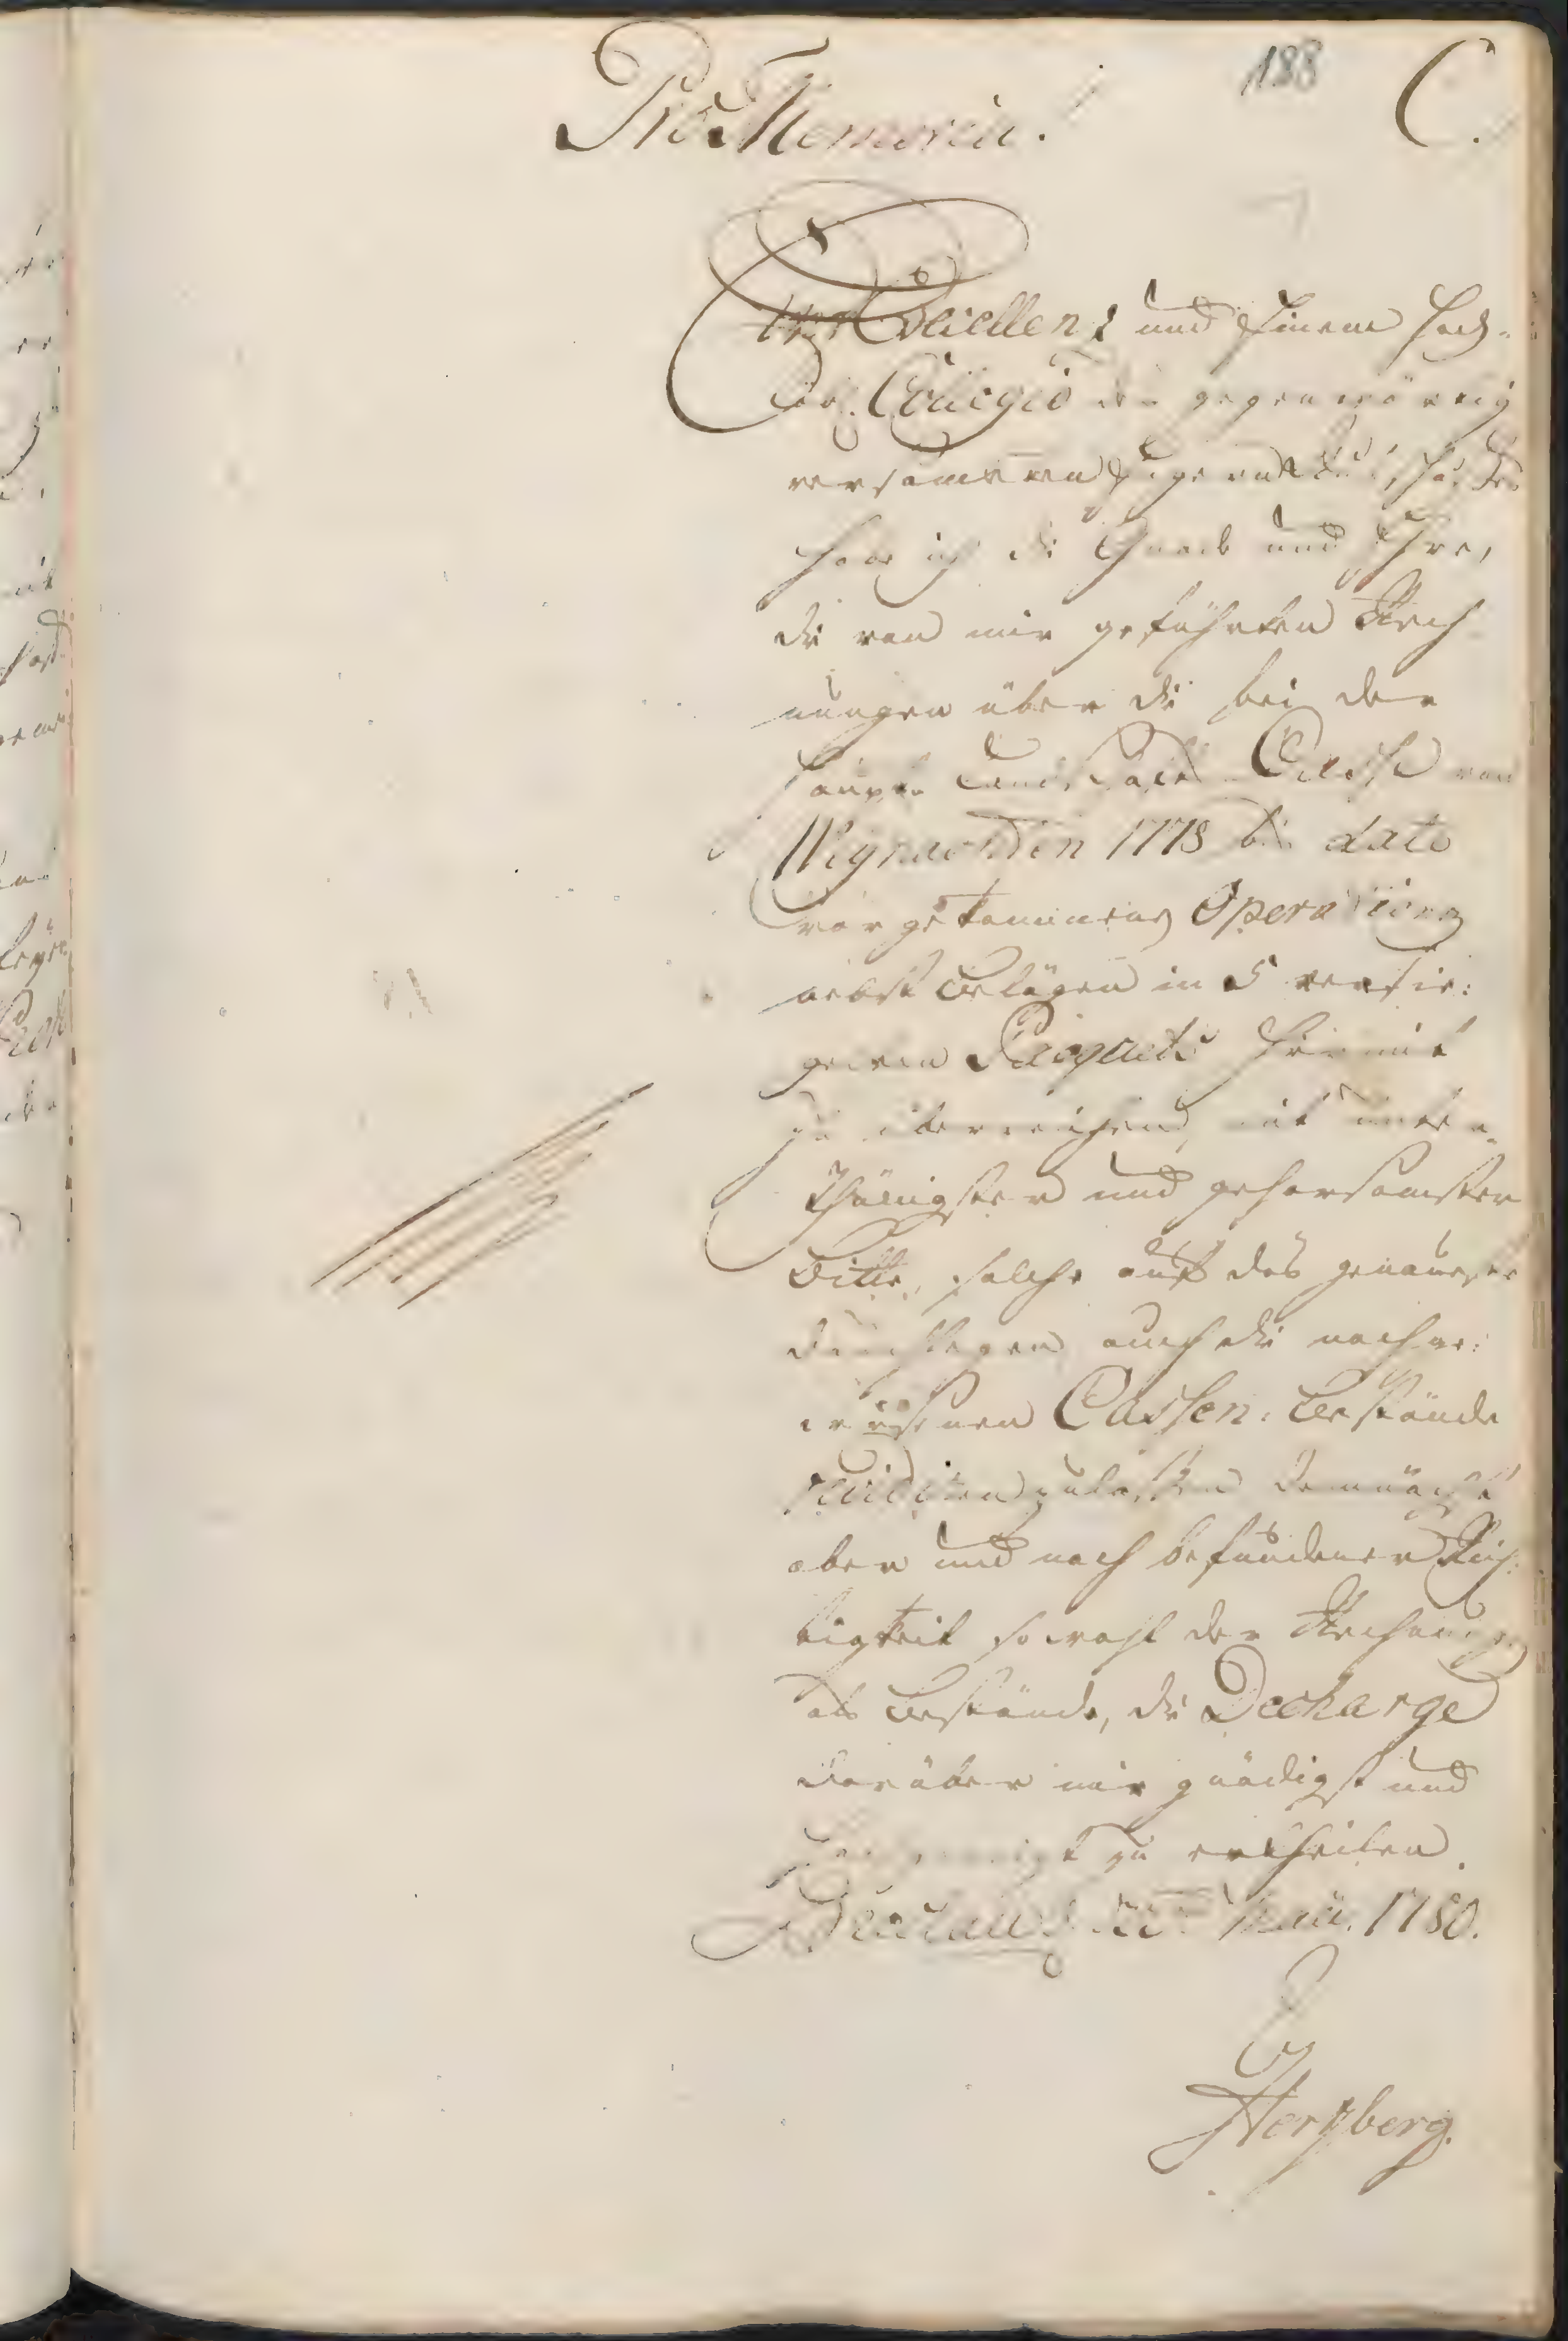 188 C.
Pro Memoria!
Ewr. Excellenz und Einem Hoch-
löbl. Collegio der gegenwärtig
versammleten
habe ich die Gnade und Ehre,
die von mir geführten Rech-
nungen über die bei der
Haupt Landschafts Casse von
Weynachten 1778 bis dato
vorgekommene Operationes
nebst Belägen in 5 versie:
gelten Pacquets hiermit
zu überreichen, mit unter-
thänigster und gehorsamster
Bitte, solche auf das genaueste
durchlegen auch die nachge:
wiesenen Cassen-Bestände
revidiren zulassen demnächst
aber und nach befundener Rich-
tigkeit sowohl der Rechnungen
als Bestände, die Decharge
darüber mir gnädigst und
zu ertheilen.
Breslau d. Maii. 1780.
Hertzberg.